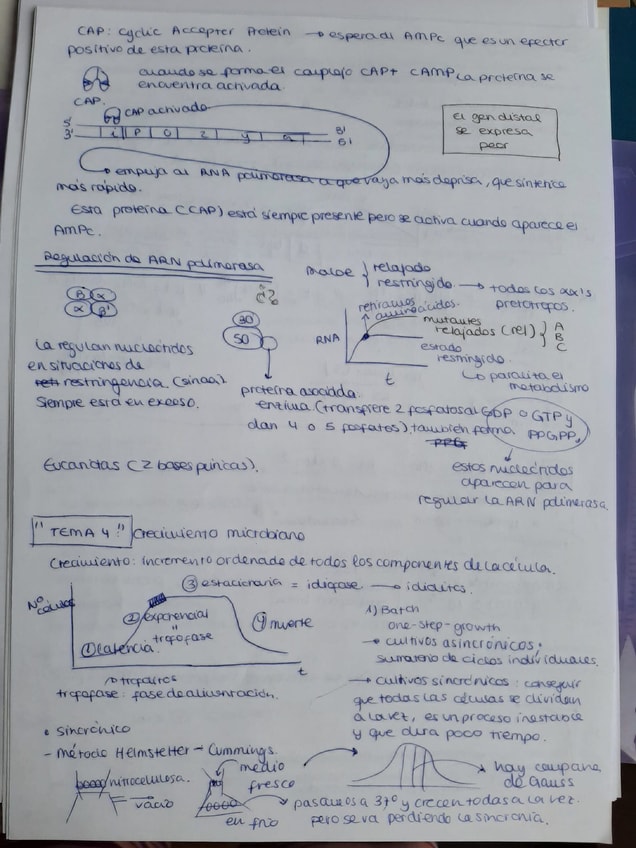 CAP: Cyclic Accepter Protein → espera al AMPc que es un efector
positivo de esta proteína.
cuando se forma el complejo CAP + CAMP la proteína se
encuentra activada
CAP.
CAP activado
5' 3'
i P O z y a
3' 5'
El gen distal
se expresa
peor
→ empuja al RNA polimerasa a que vaya más deprisa, que sintetice
más rápido.
Esta proteína (CAP) está siempre presente pero se activa cuando aparece el
AMPc.
Regulación de ARN polimerasa
β α
α β'
¿?
La regulan nucleótidos
en situaciones de
restringencia. (sin aa)
Siempre está en exceso.
30
50
proteína asociada.
enzima (transfiere 2 fosfatos al GDP o GTP y
dan 4 o 5 fosfatos), también forma PPGPP
relajado
restringido → todos los aa's
prototropos.
retiramos
aminoácidos.
RNA
t
mutantes
relajados (rel)
A
B
C
estado
restringido.
↳ paraliza el
metabolismo
estos nucleótidos
aparecen para
regular la ARN polimerasa.
Eucariotas (2 bases púricas).
"TEMA 4:" Crecimiento microbiano
Crecimiento: incremento ordenado de todos los componentes de la célula.
③ estacionaria = idiofase → idiolitos.
Nº
células
② exponencial
"
trofofase
① latencia
④ muerte
t
trofofase: fase de alimentación.
1) Batch
one-step-growth
→ cultivos asincrónicos:
sumatorio de ciclos individuales.
→ cultivos sincrónicos: conseguir
que todas las células se dividan
a la vez, es un proceso inestable
y que dura poco tiempo.
• sincrónico
- Método Helmstetter - Cummings.
nitrocelulosa.
→ vacío
medio
fresco
en frío
hay campana
de Gauss
pasamos a 37º y crecen todas a la vez.
pero se va perdiendo la sincronía.